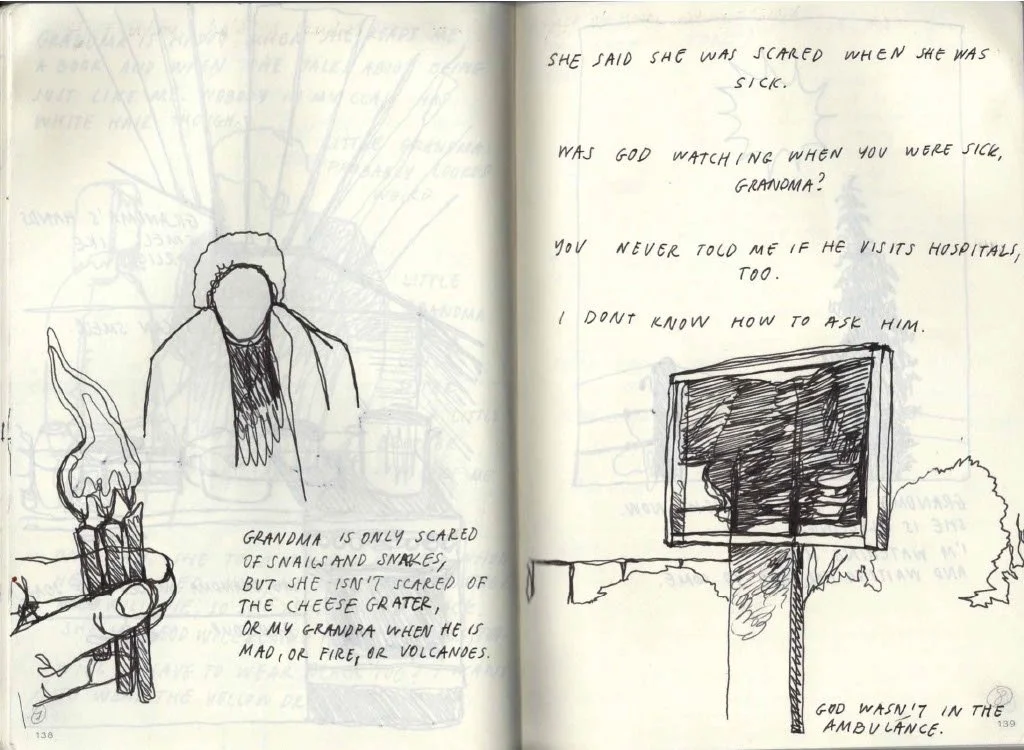 GRANDMA IS ONLY SCARED
OF SNAILS AND SNAKES,
BUT SHE ISN'T SCARED OF
THE CHEESE GRATER,
OR MY GRANDPA WHEN HE IS
MAD, OR FIRE, OR VOLCANOES.
7
138
SHE SAID SHE WAS SCARED WHEN SHE WAS
SICK.
WAS GOD WATCHING WHEN YOU WERE SICK,
GRANDMA?
YOU NEVER TOLD ME IF HE VISITS HOSPITALS,
TOO.
I DONT KNOW HOW TO ASK HIM.
GOD WASN'T IN THE
AMBULANCE.
8
139